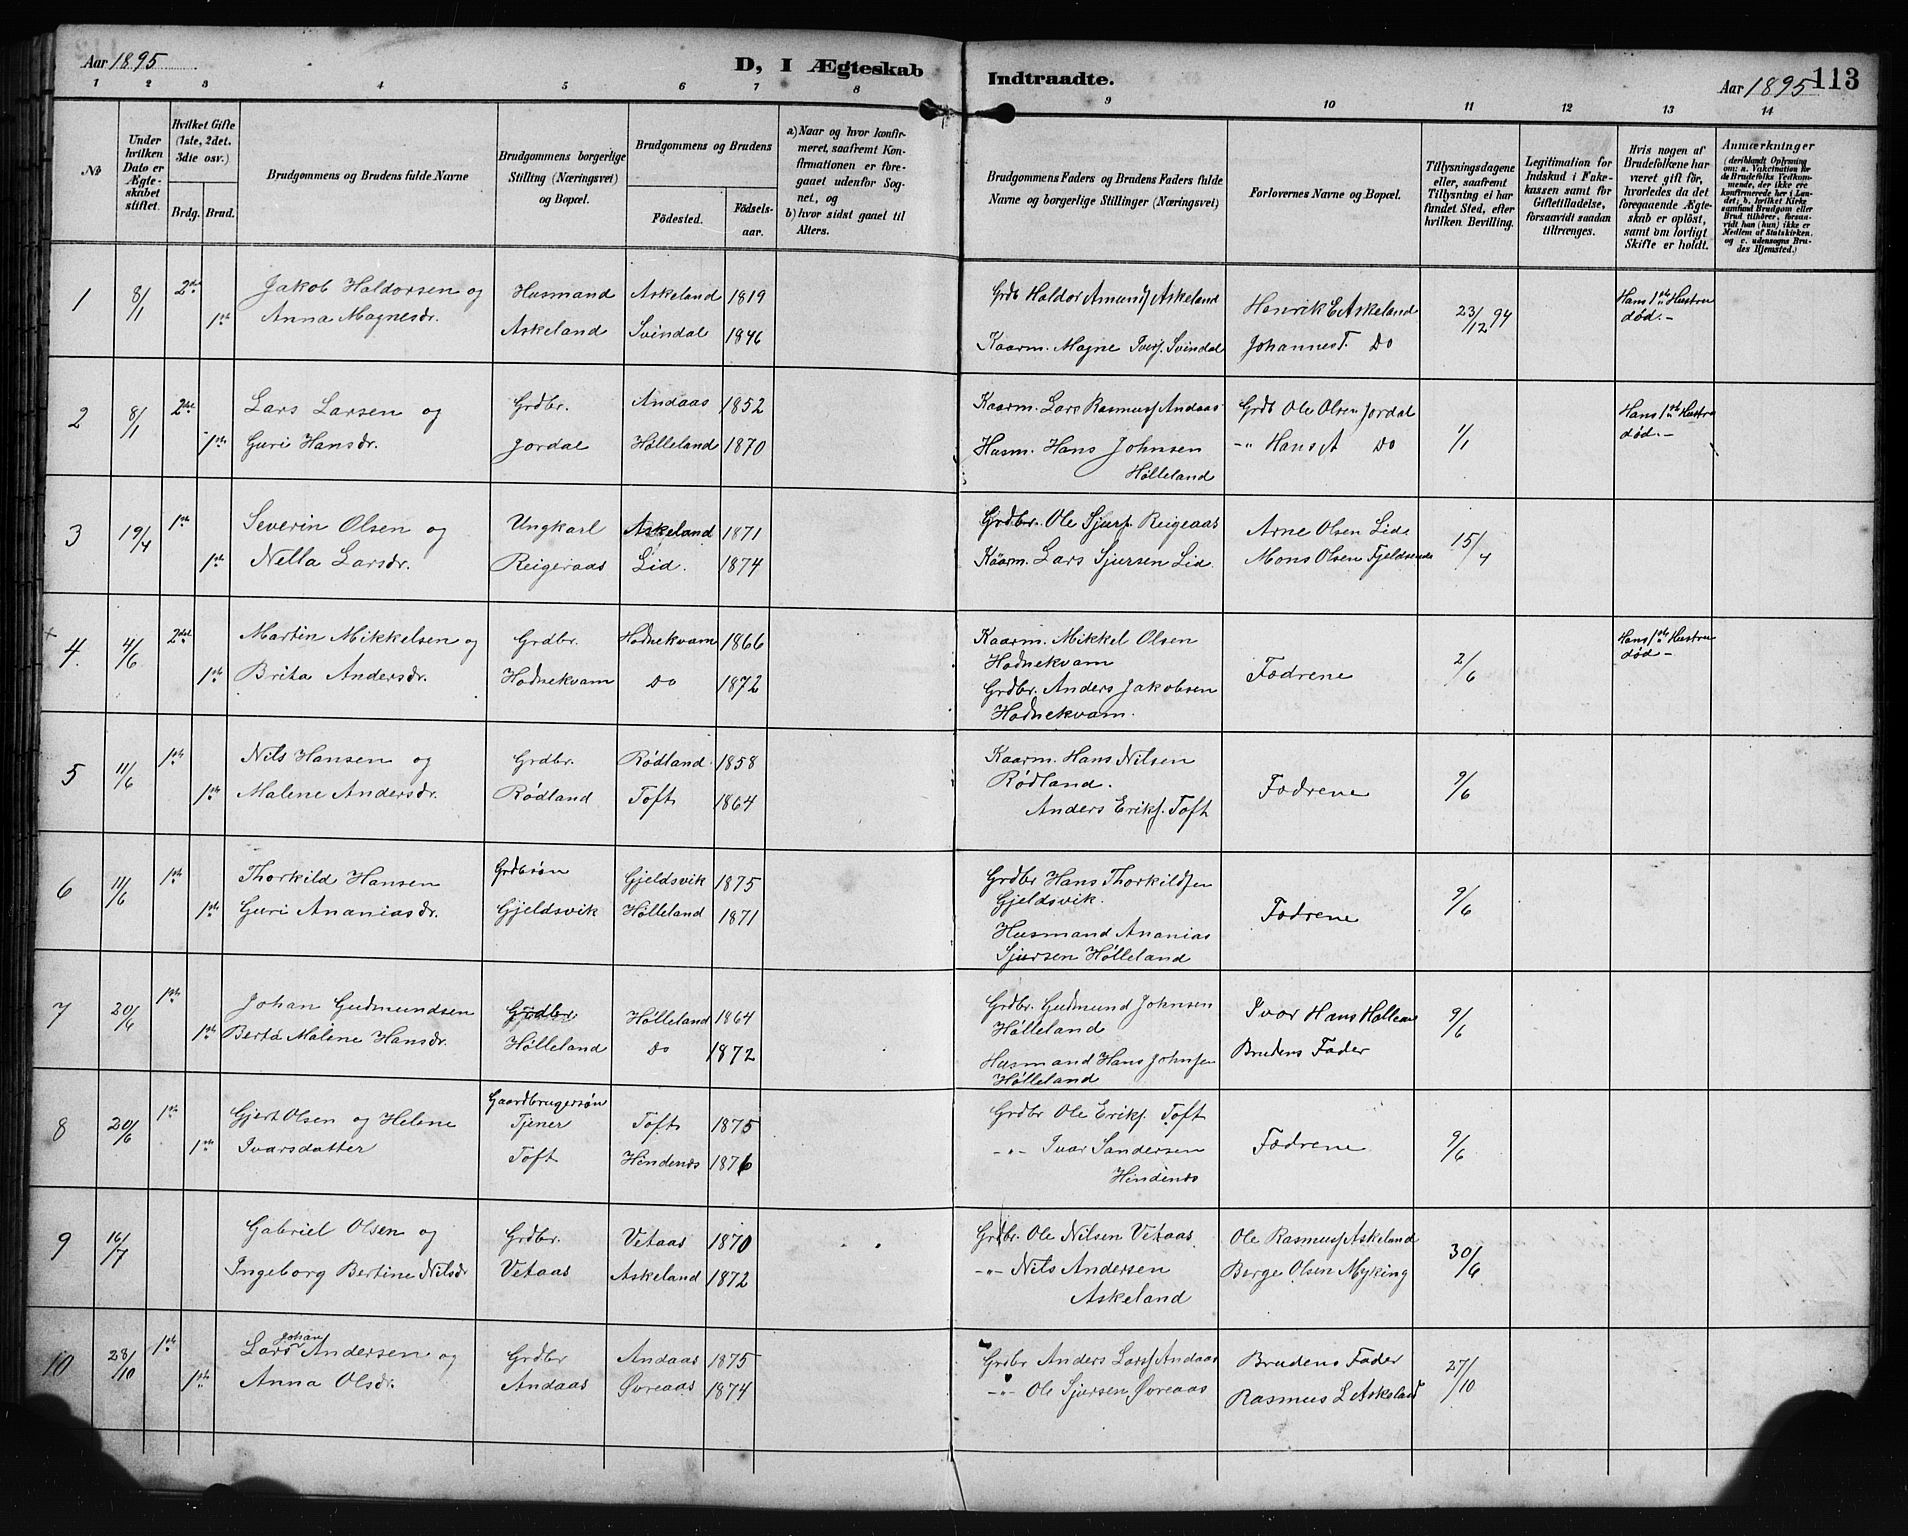 Aar 1895
D, I Ægteskab Indtraadte.
Aar 1895 113
1 2 3 4 5 6 7 8 9 10 11 12 13 14
No
Under hvilken Dato er Ægteskabet stiftet.
Hvilket Gifte (1ste, 2det. 3dte osv.)
Brdg. Brud.
Brudgommens og Brudens fulde Navne
Brudgommens borgerlige Stilling (Næringsvei) og Bopæl.
Brudgommens og Brudens
Fødested. Fødselsaar.
a) Naar og hvor konfirmeret, saafremt Konfirmationen er foregaaet udenfor Sognet, og
b) hvor sidst gaaet til Alters.
Brudgommens Faders og Brudens Faders fulde Navne og borgerlige Stillinger (Næringsvei)
Forlovernes Navne og Bopæl.
Tillysningsdagene eller, saafremt Tillysning ei har fundet Sted, efter hvilken Bevilling.
Legitimation for Indskud i Enkekassen samt for Giftetilladelse, forsaavidt saadan tiltrænges.
Hvis nogen af Brudefolkene har været gift før, hvorledes da det foregaaende Ægteskab er opløst, samt om lovligt Skifte er holdt.
Anmærkninger
(deriblandt Oplysning om: a. Vaksination for de Brudefolks Vedkommende, der ikke ere konfirmerede her i Landet; b. hvilket Kirkesamfund Brudgom eller Brud tilhører, forsaavidt han (hun) ikke er Medlem af Statskirken, og c. udensogns Brudes Hjemsted.)
1 8/1 2det Jakob Haldorsen og Husmand Askeland 1819 Grdb Haldor Amunds Askeland Henrik E Askeland 23/12 94 Hans 1ste Hustru død.-
1ste Anna Magnesdr. Askeland Svindal 1846 Kaarm. Magne Ivers. Svindal Johannes T. Do
2 8/1 2det Lars Larsen og Grdbr. Andaas 1852 Kaarm. Lars Rasmuss Andaas Grdb Ole Olsen Jordal 1/1 Hans 1ste Hustru død.-
1ste Guri Hansdr. Jordal Hølleland 1870 Husm. Hans Johnsen Hølleland -"- Hans A Do
3 19/4 1ste Severin Olsen og Ungkarl Askeland 1871 Grdbr. Ole Sjurs. Reigeraas Arne Olsen Lid 15/4
1ste Nella Larsdr. Reigeraas Lid. 1874 Kaarm. Lars Sjursen Lid. Mons Olsen Fjeldsende
4. 4/6 2det Martin Mikkelsen og Grdbr. Hodnekvam 1866 Kaarm. Mikkel Olsen Hodnekvam Fædrene 2/6 Hans 1ste Hustru død-
1ste Brita Andersdr. Hodnekvam Do 1872 Grdbr. Anders Jakobsen Hodnekvam.
5 11/6 1ste Nils Hansen og Grdbr. Rødland 1858 Kaarm. Hans Nilsen Rødland. Fædrene 9/6
1ste Malene Andersdr. Rødland Toft 1864 Anders Eriks. Toft
6 11/6 1ste Thorkild Hansen Grdbrsøn Gjeldsvik 1875 Grdbr Hans Thorkildsen Gjeldsvik. Fædrene 9/6
1ste Guri Ananiasdr. Gjeldsvik Hølleland 1871 Husmand Ananias Sjursen Hølleland
7 20/6 1ste Johan Gudmundsen Grdbr Hølleland 1864 Grdbr. Gudmund Johnsen Hølleland Ivar Hans Hølleland 9/6
1ste Berta Malene Hansdr. Hølleland Do 1872 Husmand Hans Johnsen Hølleland Brudens Fader
8 20/6 1ste Gjert Olsen og Helene Gaardbrugersøn Tjener Toft 1875 Grdbr Ole Eriks. Toft Fædrene 9/6
1ste Ivarsdatter Toft Hindenes 1876 -"- Ivar Sandersen Hindenes
9 16/7 Gabriel Olsen og Grdbr. Vetaas 1870 Grdbr. Ole Nilsen Vetaas Ole Rasmuss Askeland 30/6
Ingeborg Bertine Nilsdr Vetaas Askeland 1872 -"- Nils Andersen Askeland Berge Olsen Myking
10 28/10 1ste Lars Johan Andersen og Grdbr Andaas 1875 Grdbr Anders Larss Andaas Brudens Fader 27/10
1ste Anna Olsdr. Andaas Øvreaas 1874 -"- Ole Sjursen Øvreaas Rasmus L Askeland